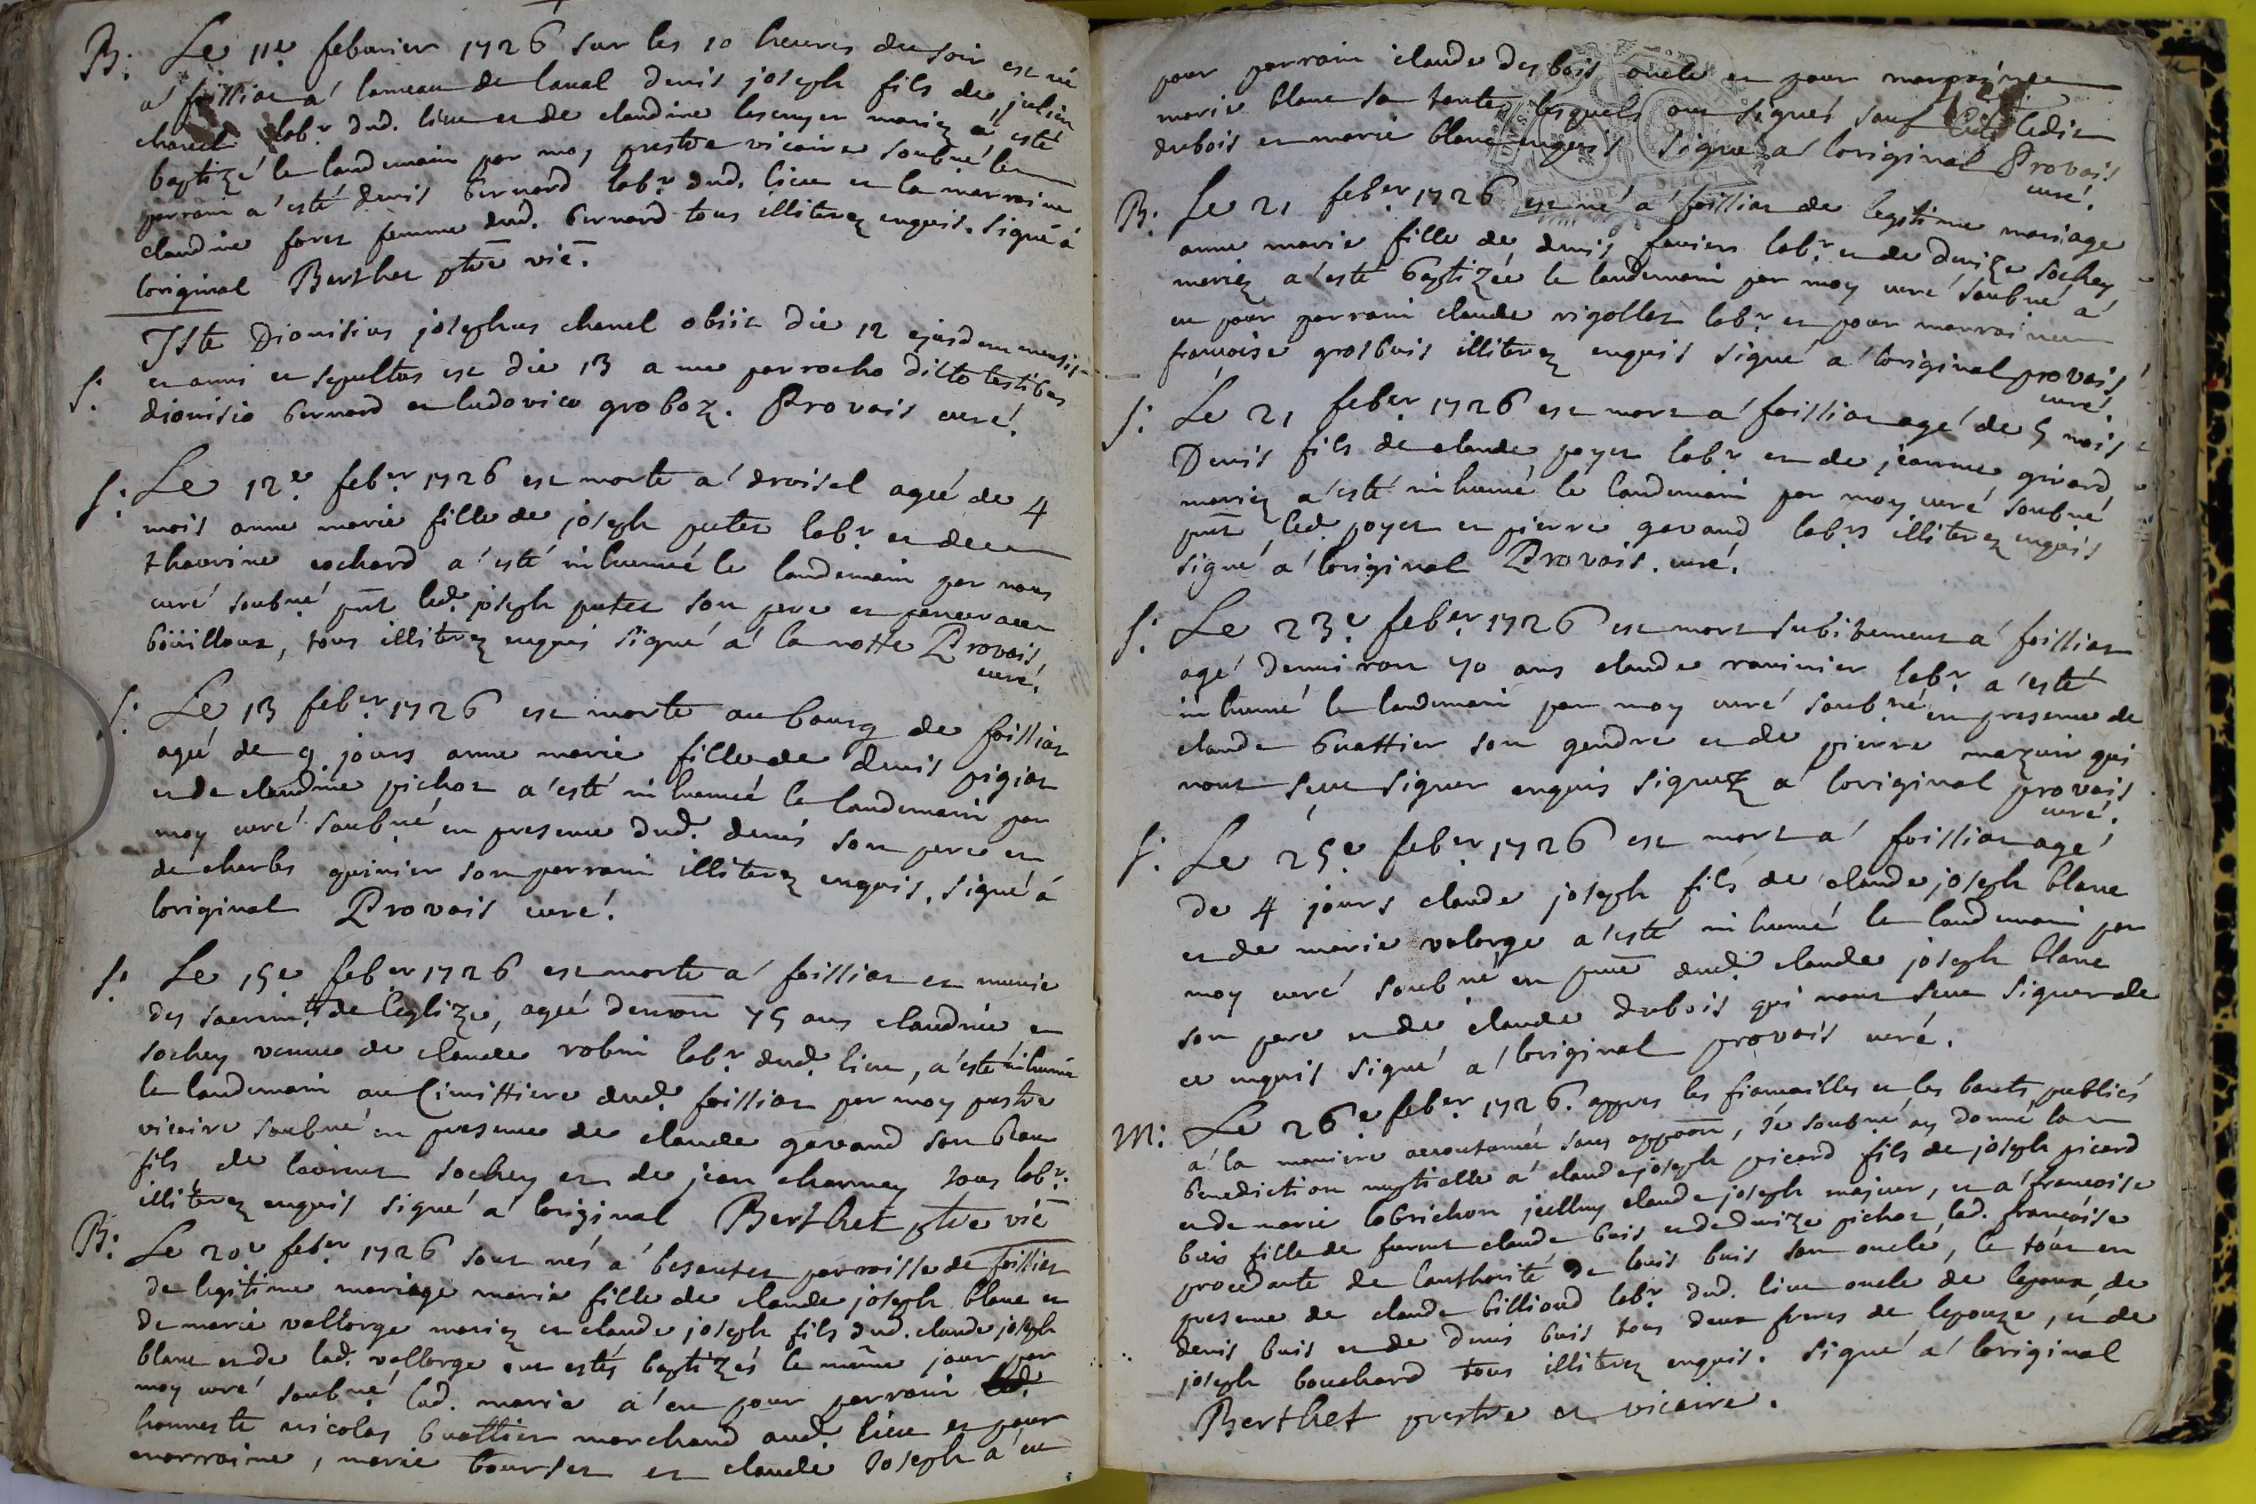 B: Le 11e febvrier 1726 sur les 10 heures du soir est né
a foillias a lameau de laval denis joseph fils de julien
chanel labr dud. lieu et de claudine lescuyer mariez a esté
baptizé le landemain par moy prestre vicaire soubné le
parrain a esté denis bernard labr dud. lieu et la marraine
claudine foret femme dud. bernard tous illiterez enquis. signé á
loriginal Berthet ptre vic.
S: Iste Dionisius josephus chanel obiit die 12 ejusdem mensis
et anni et sepultus est die 13 a me parrocho dicto testibus
dionisio bernard et ludovico groboz. Provais curé.
S: Le 12e feber 1726 est morte a droisel agée de 4
mois anne marie fille de joseph putet labr et de
thaurine cochard a esté inhumée le landemain par nous
curé soubné pnt led. joseph putet son pere et
boüilloux, tous illiterez enquis signé a la notte Provais
curé.
S: Le 13 feber 1726 est morte au bourg de foillias
agée de 9 jours anne marie fille de denis pigiat
et de claudine pichot a esté inhumée le landemain par
moy curé soubné en presence dud. denis son pere et
de charles guinier son parrain illiterez enquis. signé á
loriginal Provais curé.
S: Le 15e feber 1726 est morte a foillias et munie
des sacrmts de leglize, agée denvon 75 ans claudine
sochey veuve de claude robin labr dud. lieu, a esté inhumée
le landemain au Cimittiere dud. foillias par moy prestre
vicaire soubné en presence de claude gavand son beau
fils de laurent sochey et de jean charnay tous labr.
illiterez enquis signé a loriginal Berthet ptre vic
B: Le 20e feber 1726 sont nés a besentet parroisse de foillias
de legitime mariage marie fille de claude joseph blanc et
de marie vallorge mariez et claude joseph fils dud. claude joseph
blanc et de lad. vallorge ont estés baptizés le même jour par
moy curé soubné lad. marie a eu pour parrain
honneste nicolas buattier marchand aud. lieu et pour
marraine, marie bourset et claude Joseph a eu
pour parrain claude desbois oncle et pour marraine
marie blanc sa tante lesquels ont signés sauf ledit
dubois et marie blanc enquis signé a loriginal Provais
curé.
B: Le 21 feber 1726 est né a foillias de legitime mariage
anne marie fille de denis favier labr et de denize sochey
mariez a esté baptizée le landemain par moy curé soubné a
eu pour parrain claude rigollet labr et pour marraine
françoise grosbuis illiterez enquis signé a loriginal provais
curé.
S: Le 21 feber 1726 est mort a foillias agé de 5 mois
Denis fils de claude poyet labr et de jeanne girard
mariez a esté inhumé le landemain par moy curé soubné
pnt led. poyet et pierre gavand labrs illiterez enquis
signé a loriginal Provais. curé.
S: Le 23e feber 1726 est mort subitement a foillias
agé denviron 70 ans claude ravinier labr a esté
inhumé le landemain par moy curé soubné en presence de
claude buattier son gendre et de pierre mazuir qui
n'ont sceu signer enquis signez a loriginal provais
curé.
S: Le 25e feber 1726 est mort a foillias agé
de 4 jours claude joseph fils de claude joseph blanc
et de marie valorge a esté inhumé le landemain par
moy curé soubné en pnce dud. claude joseph blanc
son pere et de claude dubois qui n'ont sceu signer de
ce enquis signé a loriginal provais curé.
M: Le 26e feber 1726. appres les fiançailles et les bants publiés
a la maniere accoutumée sans oppoon, Je soubné ay donné la
benediction nuptialle a claude joseph picard fils de joseph picard
et de marie labrichon jcelluy claude joseph majeur, et a françoise
buis fille de furent claude buis et de denize pichot, lad. françoise
procedante de lauthorité de louis buis son oncle, le tout en
presence de claude billioud labr dud. lieu oncle de lepoux, de
denis buis et de denis buis tous deux freres de lepouze, et de
joseph bouchard tous illiterez enquis. signé a loriginal
Berthet prestre et vicaire.